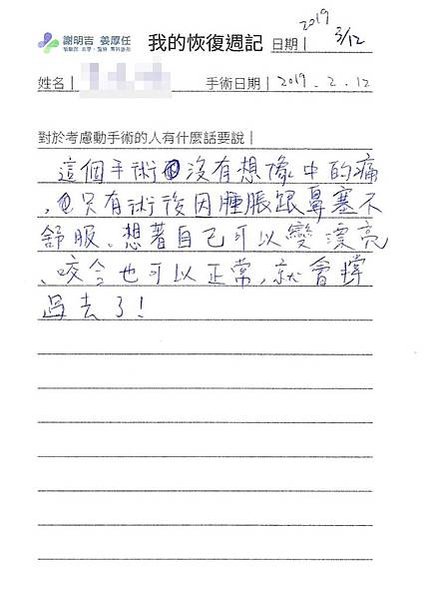 謝明吉 姜厚任
我的恢復週記 日期| 2019 3/12
姓名| 手術日期| 2019.2.12
對於考慮動手術的人有什麼話要說|
這個手術沒有想像中的痛
,只有術後因腫脹跟鼻塞不
舒服、想著自己可以變漂亮
、咬合也可以正常,就會撐
過去了!